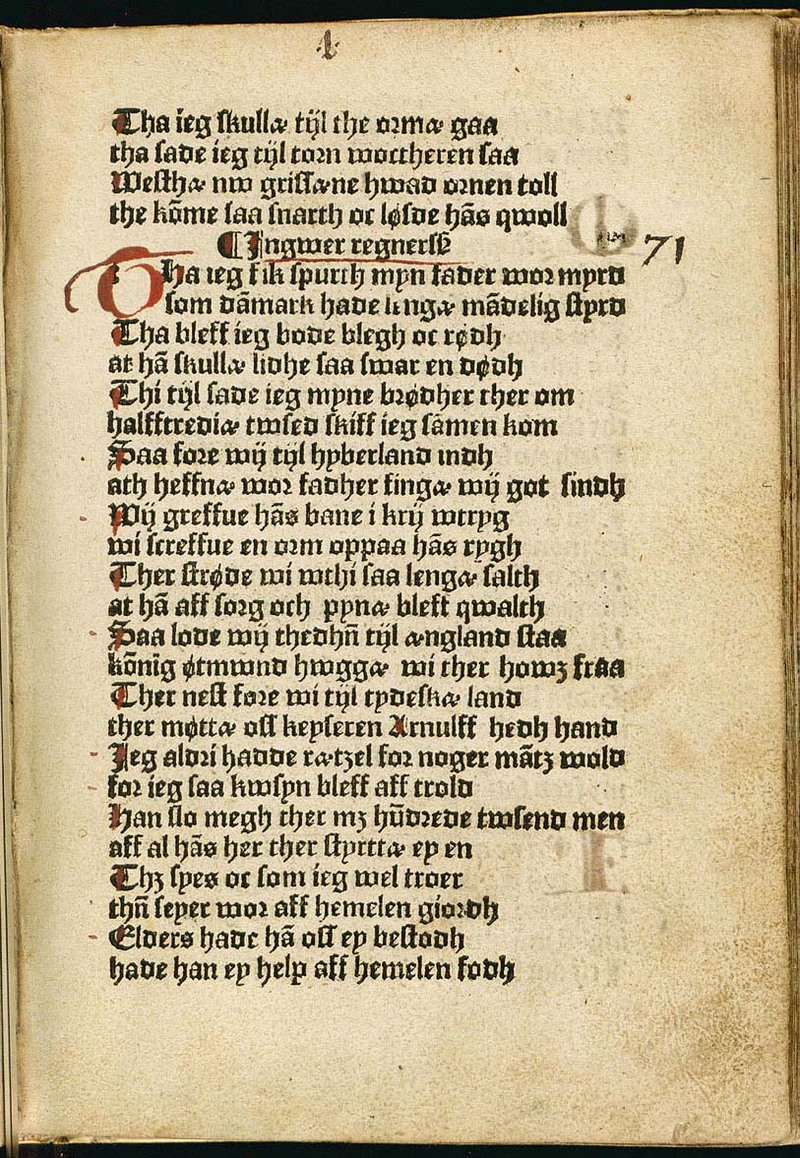 1
Tha ieg skullæ tijl the ormæ gaa
tha sade ieg tijl torn woctheren saa
Westhæ nw grissæne hwad ornen toll
the kōme saa snarth oc løsde hās qwoll
¶Ingwer regnersß
71
THa ieg fik spurth myn fader wor myrd
som dāmark hade lengæ mādelig styrd
Tha bleff ieg bode blegh oc rødh
at hā skullæ lidhe saa swar en dødh
Thi tijl sade ieg myne brødher ther om
halfftrediæ twsed skiff ieg sāmen kom
Saa fore wij tijl hyberland indh
ath heffnæ wor fadher fingæ wij got sindh
Wij greffue hās bane i krij wtryg
wi screffue en orm oppaa hās rygh
Ther strøde wi wthi saa lengæ salth
at hā aff sorg och pynæ bleft qwalth
Saa lode wij thedhn̄ tijl ængland staa
kōnig øtmwnd hwggæ wi ther howꝫ fraa
Ther nest fore wi tijl tydeskæ land
ther møttæ oss keyseren Arnulff hedh hand
Jeg aldri hadde rætzel for noger mātz wold
for ieg saa kwsyn bleff aff trold
Han slo megh ther mꝫ hūdrede twsend men
aff al hās her ther styrttæ ey en
Thꝫ syes oc som ieg wel troer
thn̄ seyer wor aff hemelen giordh
Elders hade hā oss ey bestodh
hade han ey help aff hemelen fodh